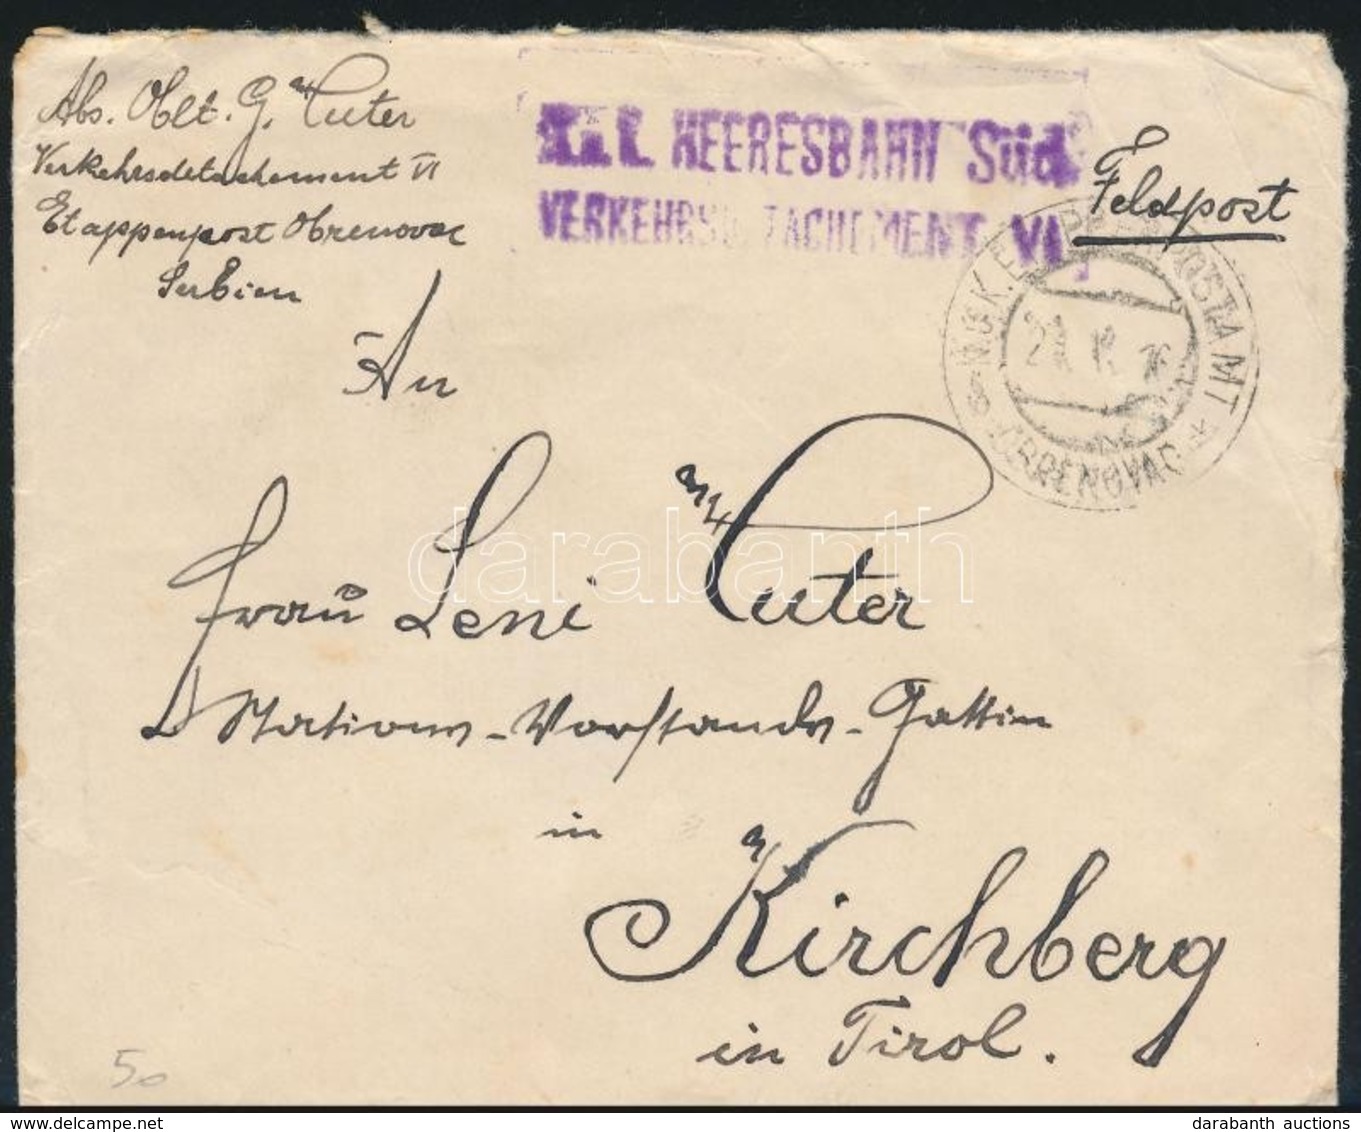 Abs. Oblt. G. Cuter
Verkehrsdetachement VI
Etappenpost Obrenovac
Serbien
K.u.K. HEERESBAHN Süd.
VERKEHRSDETACHEMENT VI.
Feldpost
K.u.K. ETAPPENPOSTAMT
OBRENOVAC
An
Frau Leni Cuter
Stations-Vorstands-Gattin
in
Kirchberg
in Tirol.
50
darabanth
darabanth auctions